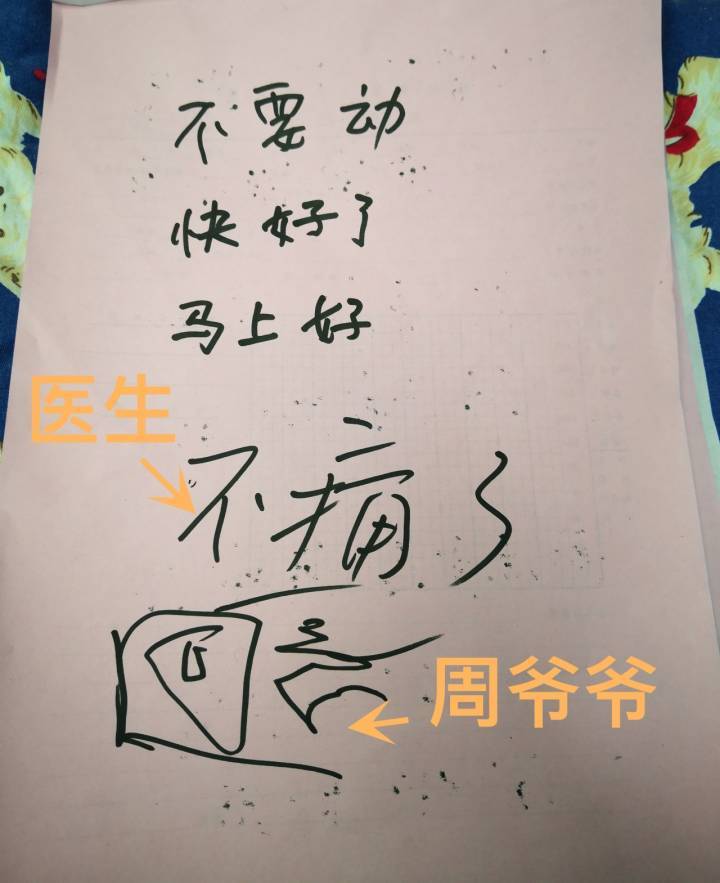 不要动
快好了
马上好
医生
不痛了
周爷爷